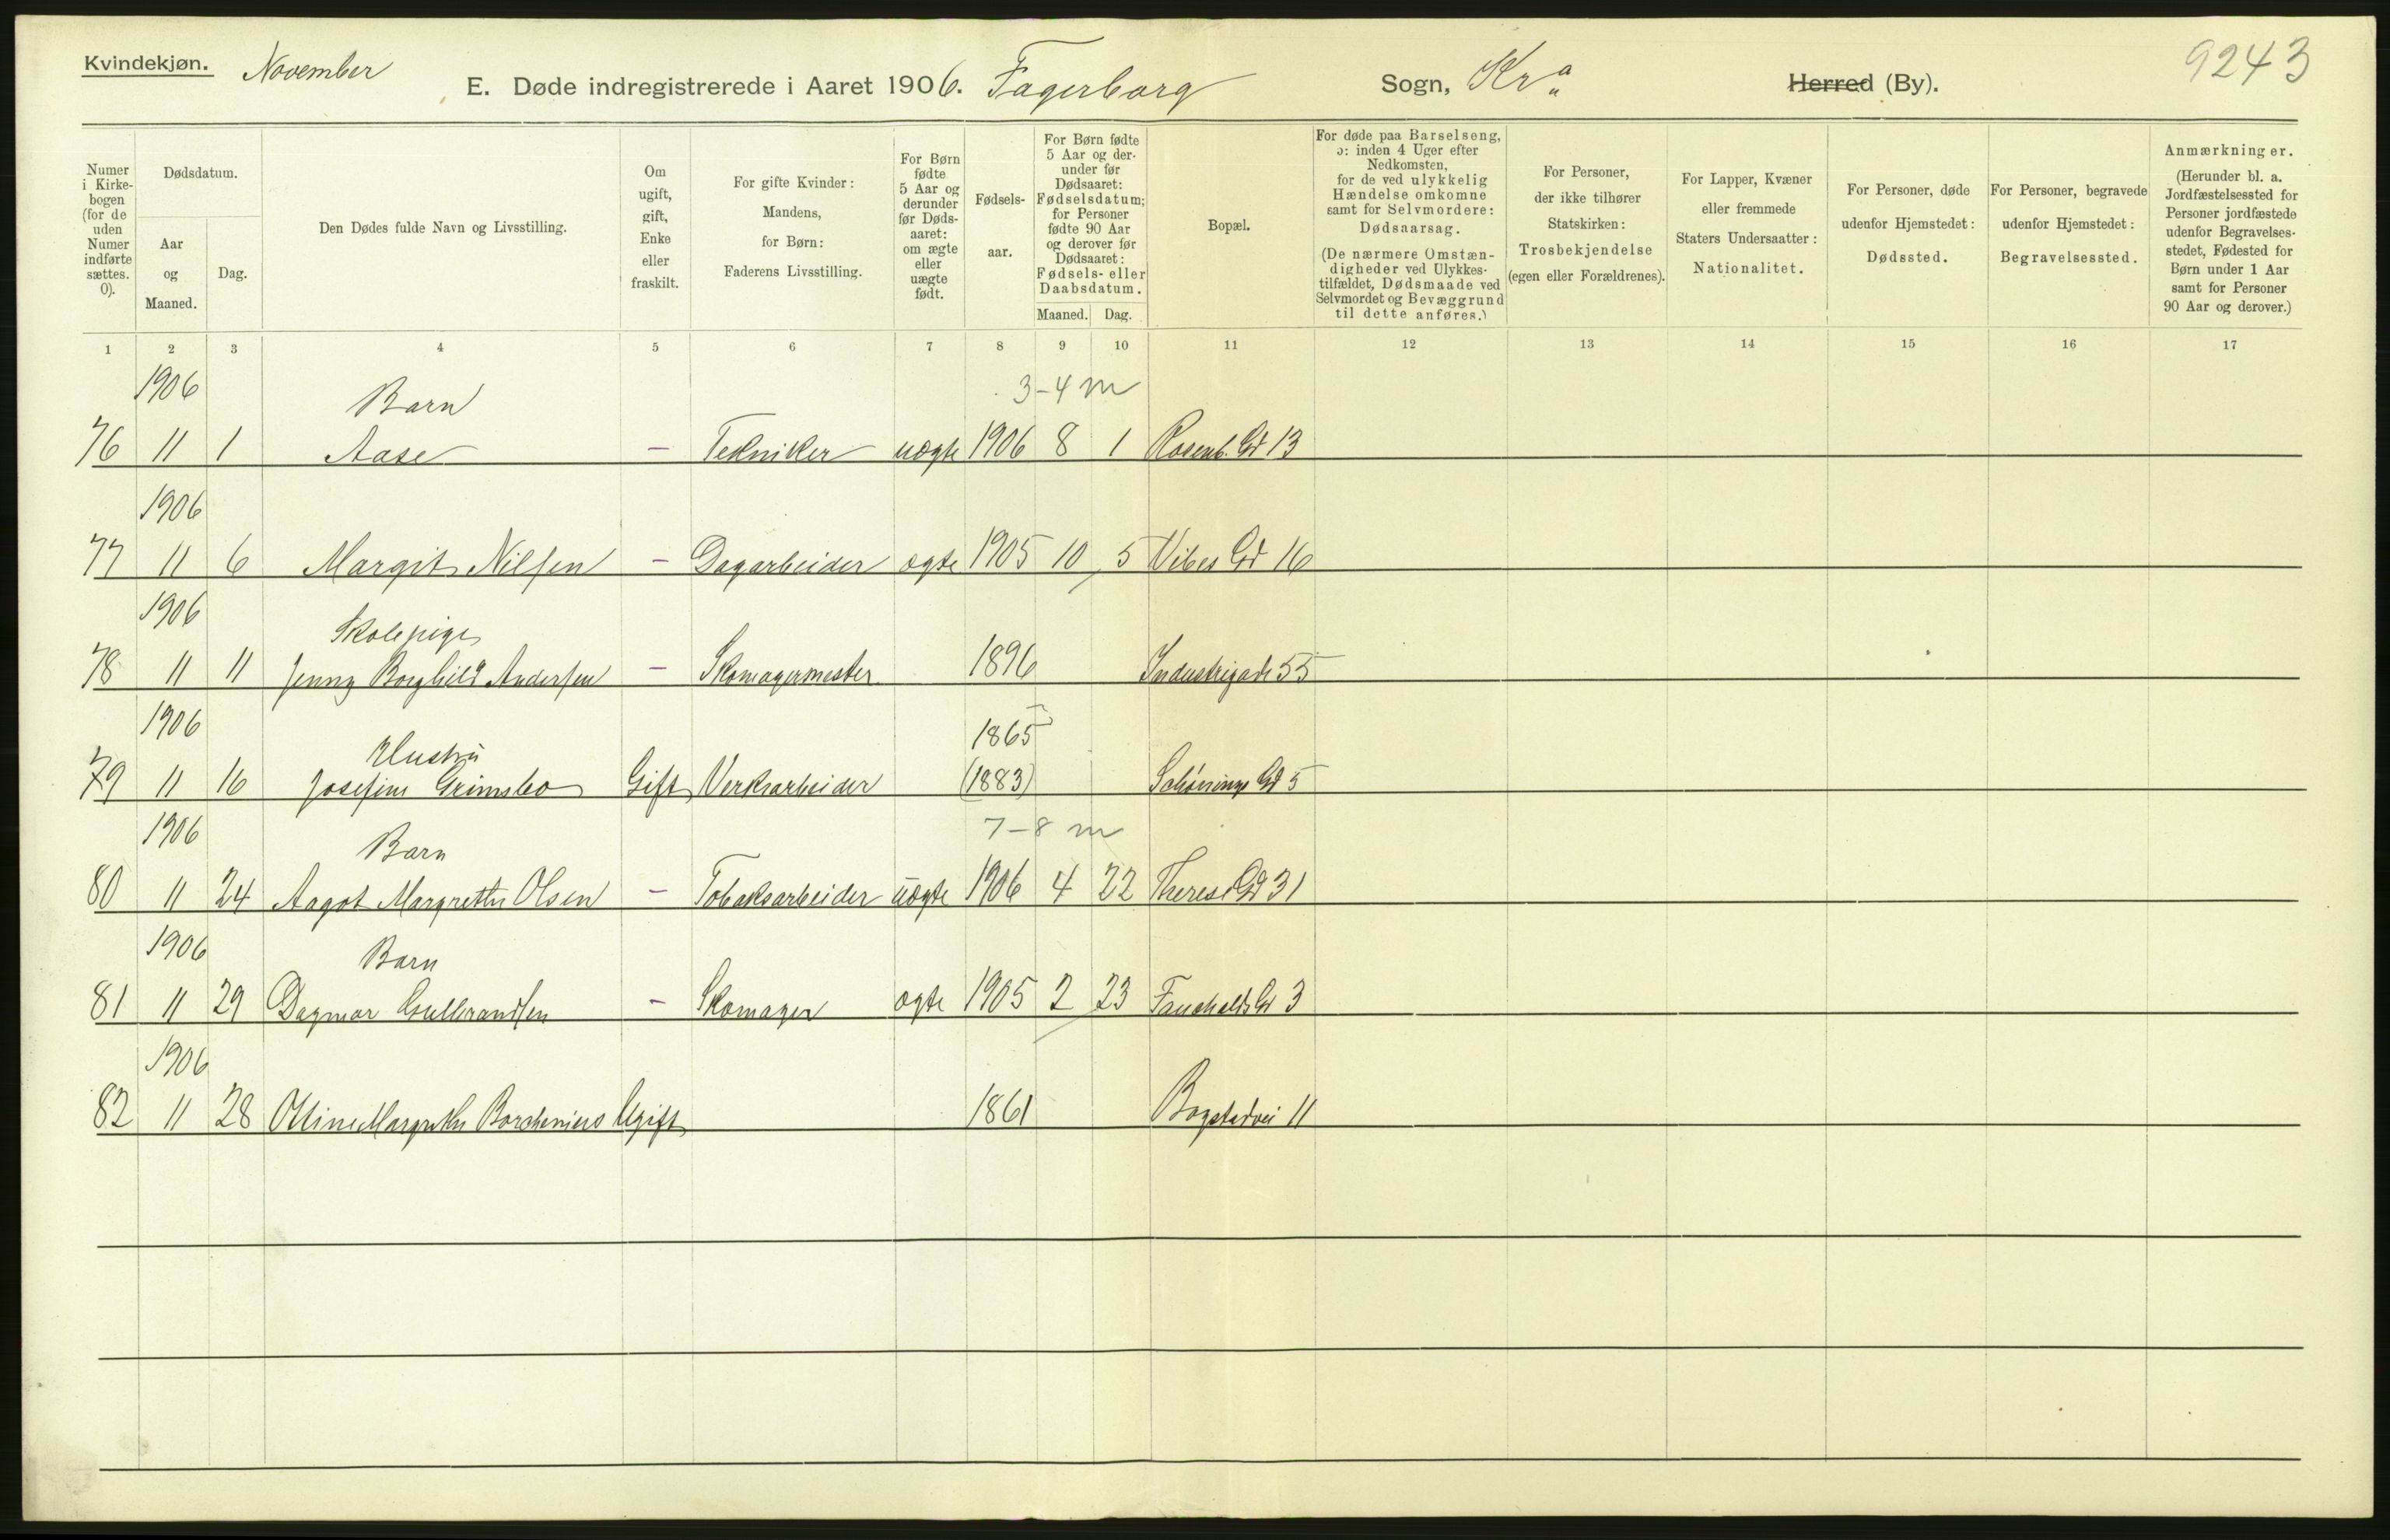 Kvindekjøn. November
E. Døde indregistrerede i Aaret 1906. Fagerborg Sogn, Kr.a Herred (By). 9243
Numer i Kirkebogen (for de uden Numer indførte sættes. 0).
Dødsdatum.
Aar og Maaned.
Dag.
Den Dødes fulde Navn og Livsstilling.
Om ugift, gift, Enke eller fraskilt.
For gifte Kvinder: Mandens, for Børn: Faderens Livsstilling.
For Børn fødte 5 Aar og derunder før Dødsaaret: om ægte eller uægte født.
Fødselsaar.
For Børn fødte 5 Aar og derunder før Dødsaaret: Fødselsdatum; for Personer fødte 90 Aar og derover før Dødsaaret: Fødsels- eller Daabsdatum.
Maaned. Dag.
Bopæl.
For døde paa Barselseng, ɔ: inden 4 Uger efter Nedkomsten, for de ved ulykkelig Hændelse omkomne samt for Selvmordere: Dødsaarsag.
(De nærmere Omstændigheder ved Ulykkestilfældet, Dødsmaade ved Selvmordet og Bevæggrund til dette anføres.)
For Personer, der ikke tilhører Statskirken: Trosbekjendelse (egen eller Forældrenes).
For Lapper, Kvæner eller fremmede Staters Undersaatter: Nationalitet.
For Personer, døde udenfor Hjemstedet: Dødssted.
For Personer, begravede udenfor Hjemstedet: Begravelsessted.
Anmærkninger.
(Herunder bl. a. Jordfæstelsessted for Personer jordfæstede udenfor Begravelsesstedet, Fødested for Børn under 1 Aar samt for Personer 90 Aar og derover.)
1 2 3 4 5 6 7 8 9 10 11 12 13 14 15 16 17
1906 Barn 3-4 m
76 11 1 Aase - Tekniker uægte 1906 8 1 Rosenb. Gd 13
1906
77 11 6 Margit Nilsen - Dagarbeider ægte 1905 10 5 Vibes Gd 16
1906 Skolepige
78 11 11 Jenny Borghild Andersen - Skomagermester 1896 Industrigade 55
1906 Hustru 1865
79 11 16 Josefine Grimsbo Gift Verksarbeider (1883) Schønings Gd 5
1906 Barn 7-8 m
80 11 24 Aagot Margrethe Olsen - Tobaksarbeider uægte 1906 4 22 Theres Gd 31
1906 Barn
81 11 29 Dagmar Gulbrandsen - Skomager ægte 1905 2 23 Fauchalds Gd 3
1906
82 11 28 Ottine Margrethe Borchenius Ugift 1861 Bogstadvei 11